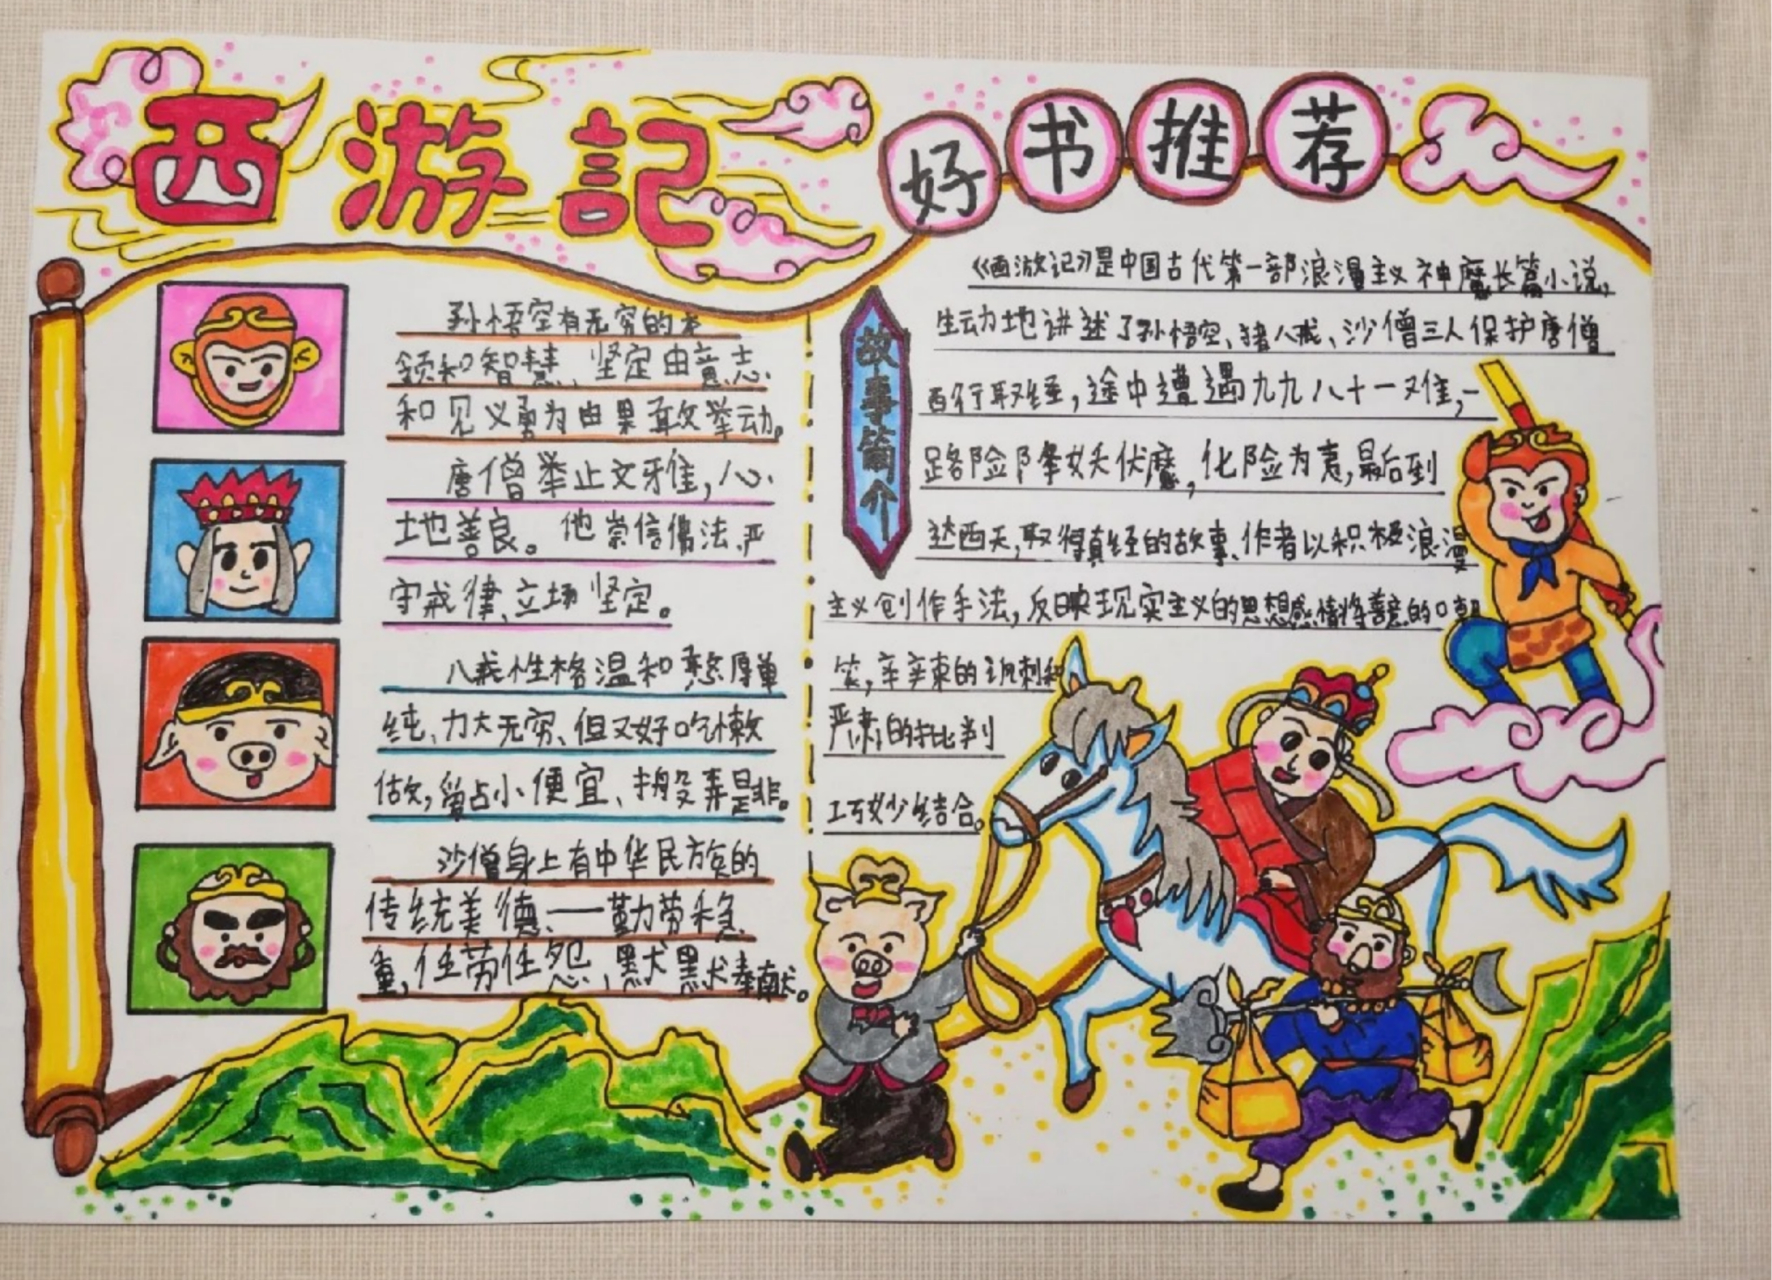 西游記
好书推荐
孙悟空有无穷的本
领和智慧、坚定由意志
和见义勇为由果敢举动。
唐僧举止文雅，心
地善良。他崇信佛法、严
守戒律、立场坚定。
八戒性格温和憨厚单
纯、力大无穷、但又好吃懒
做，贪占小便宜、搬弄是非。
沙僧身上有中华民族的
传统美德、——勤劳稳
重，任劳任怨、默默奉献。
故事简介
《西游记》是中国古代第一部浪漫主义神魔长篇小说，
生动地讲述了孙悟空、猪八戒、沙僧三人保护唐僧
西行取经，途中遭遇九九八十一难，一
路险降妖伏魔，化险为夷，最后到
达西天，取得真经的故事、作者以积极浪漫
主义创作手法，反映现实主义的思想感情将善意的嘲
笑，辛辛束的讽刺和
严肃的批判
巧妙结合。